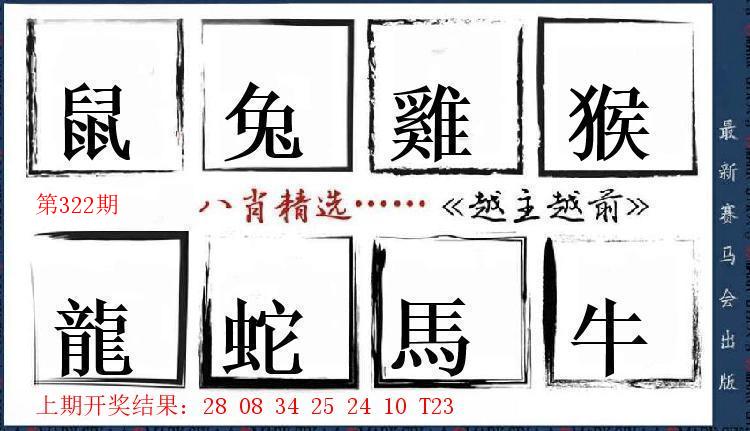 鼠 兔 雞 猴
第322期 八肖精选……《越主越前》
龍 蛇 馬 牛
上期开奖结果：28 08 34 25 24 10 T23
最新赛马会出版